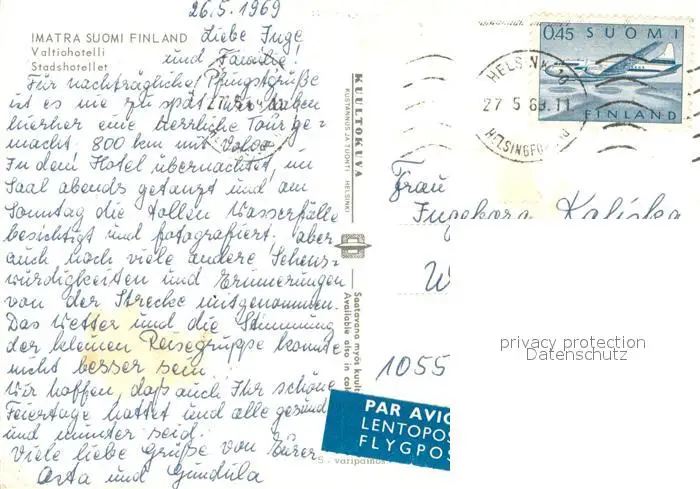 26.5.1969
IMATRA SUOMI FINLAND
Valtiohotelli
Stadshotellet
Liebe Inge
und Familie!
Für nachträgliche Pfingstgrüße
ist es nie zu spät. Wir haben
hierher eine herrliche Tour ge-
macht, 800 km mit Volvo.
In dem Hotel übernachtet, im
Saal abends getanzt und am
Sonntag die tollen Wasserfälle
besichtigt und fotografiert, aber
auch noch viele andere Sehens-
würdigkeiten und Erinnerungen
von der Strecke mitgenommen.
Das Wetter und die Stimmung
der kleinen Reisegruppe konnte
nicht besser sein.
Wir hoffen, daß auch Ihr schöne
Feiertage hattet und alle gesund
und munter seid.
Viele liebe Grüße von Eurer
Asta und Gundula
KUULTOKUVA
KUSTANNUS JA TUONTI HELSINKI
Saatavana myös kuult
Available also in col
varipainos
0,45 SUOMI
FINLAND
HELSINKI
27.5.69.11
HELSINGFORS
Frau
Ingeborg Kaliska
W
1055
privacy protection
Datenschutz
PAR AVIO
LENTOPOS
FLYGPOS